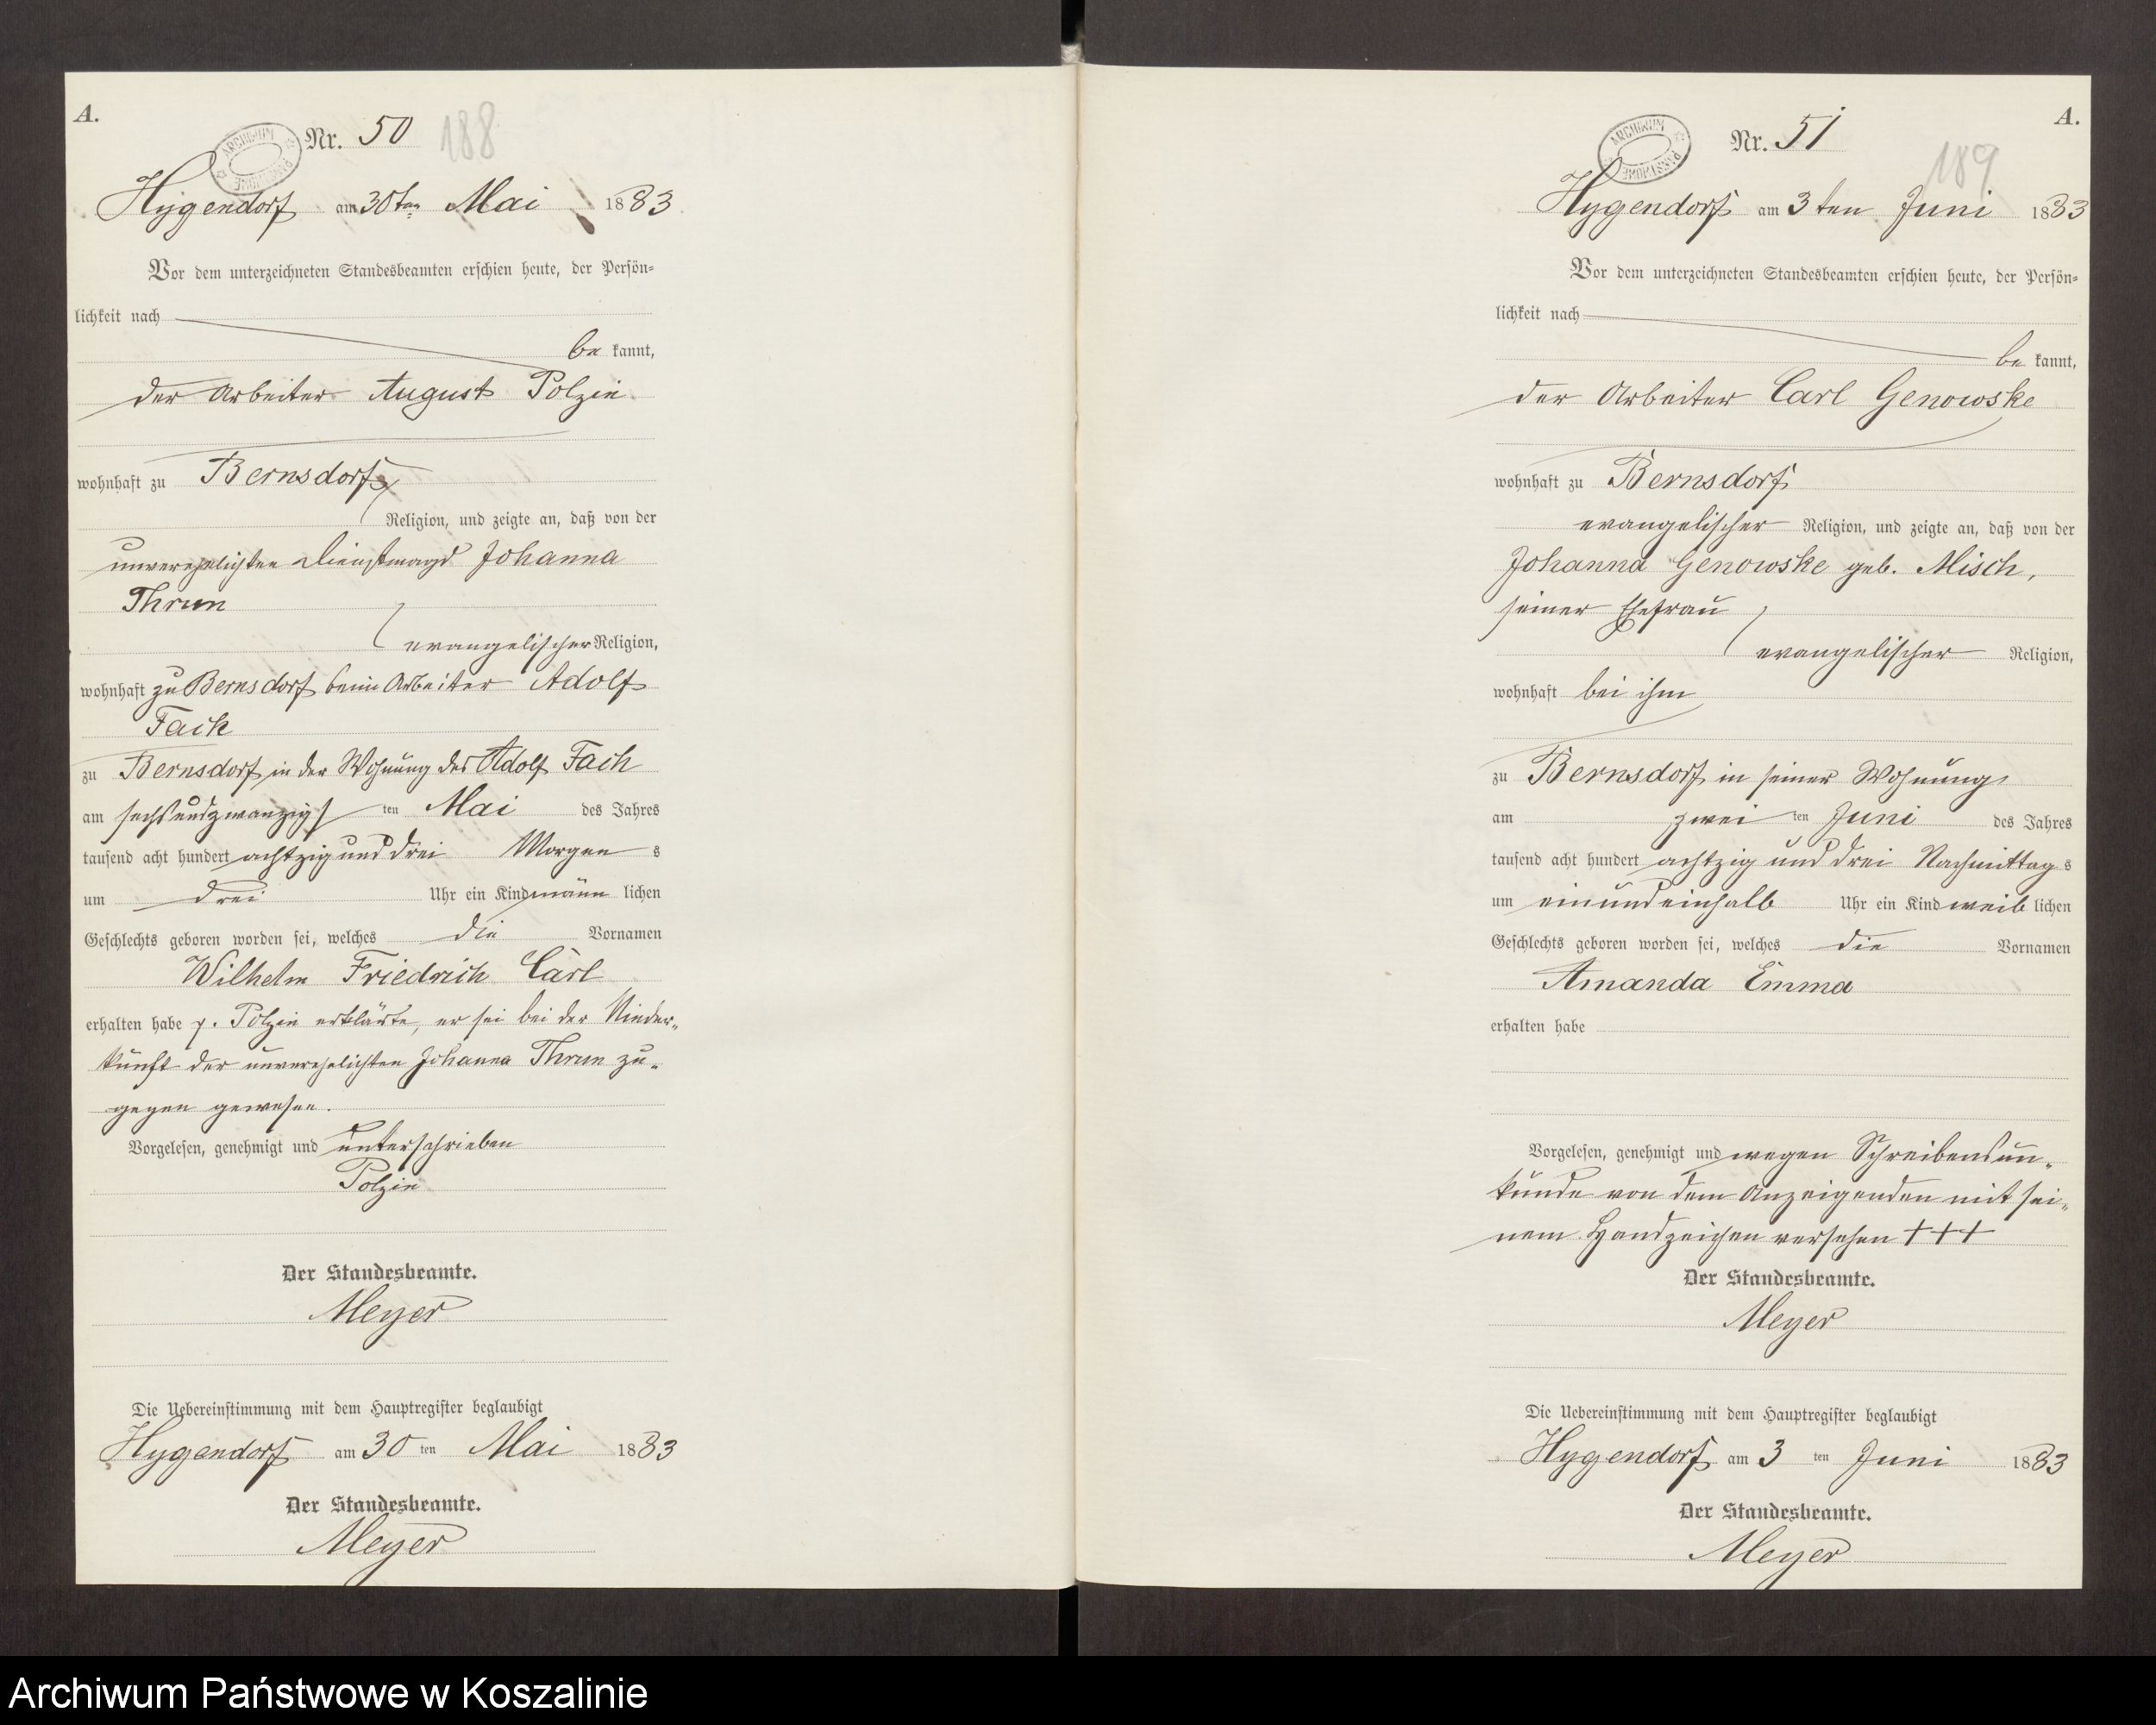 A.
ARCHIWUM PAŃSTWOWE
Nr. 50 188
Hygendorf am 30ten Mai 1883
Vor dem unterzeichneten Standesbeamten erschien heute, der Persön-
lichkeit nach
be kannt,
der Arbeiter August Polzin
wohnhaft zu Bernsdorf
Religion, und zeigte an, daß von der
unverehelichten Dienstmagd Johanna
Thrun
evangelischer Religion,
wohnhaft zu Bernsdorf beim Arbeiter Adolf
Fach
zu Bernsdorf in der Wohnung des Adolf Fach
am sechsundzwanzigsten Mai des Jahres
tausend acht hundert achtzig und drei Morgens
um drei Uhr ein Kind männlichen
Geschlechts geboren worden sei, welches die Vornamen
Wilhelm Friedrich Carl
erhalten habe p. Polzin erklärte, er sei bei der Nieder-
kunft der unverehelichten Johanna Thrun zu-
gegen gewesen.
Vorgelesen, genehmigt und unterschrieben
Polzin
Der Standesbeamte.
Meyer
Die Uebereinstimmung mit dem Hauptregister beglaubigt
Hygendorf am 30 ten Mai 1883
Der Standesbeamte.
Meyer
A.
ARCHIWUM PAŃSTWOWE
Nr. 51
189
Hygendorf am 3ten Juni 1883
Vor dem unterzeichneten Standesbeamten erschien heute, der Persön-
lichkeit nach
be kannt,
der Arbeiter Carl Genowske
wohnhaft zu Bernsdorf
evangelischer Religion, und zeigte an, daß von der
Johanna Genowske geb. Misch,
seiner Ehefrau
evangelischer Religion,
wohnhaft bei ihm
zu Bernsdorf in seiner Wohnung
am zwei ten Juni des Jahres
tausend acht hundert achtzig und drei Nachmittags
um einundeinhalb Uhr ein Kind weiblichen
Geschlechts geboren worden sei, welches die Vornamen
Amanda Emma
erhalten habe
Vorgelesen, genehmigt und wegen Schreibensun-
kunde von dem Anzeigenden mit sei-
nem Handzeichen versehen +++
Der Standesbeamte.
Meyer
Die Uebereinstimmung mit dem Hauptregister beglaubigt
Hygendorf am 3 ten Juni 1883
Der Standesbeamte.
Meyer
Archiwum Państwowe w Koszalinie